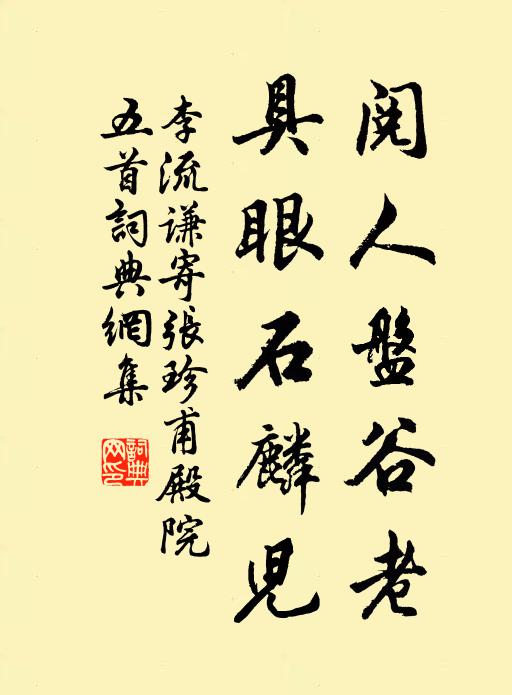 阅人盤谷老
具眼石麟児
李流谦寄張珍甫殿院
五首詞典網集
詞典
网印